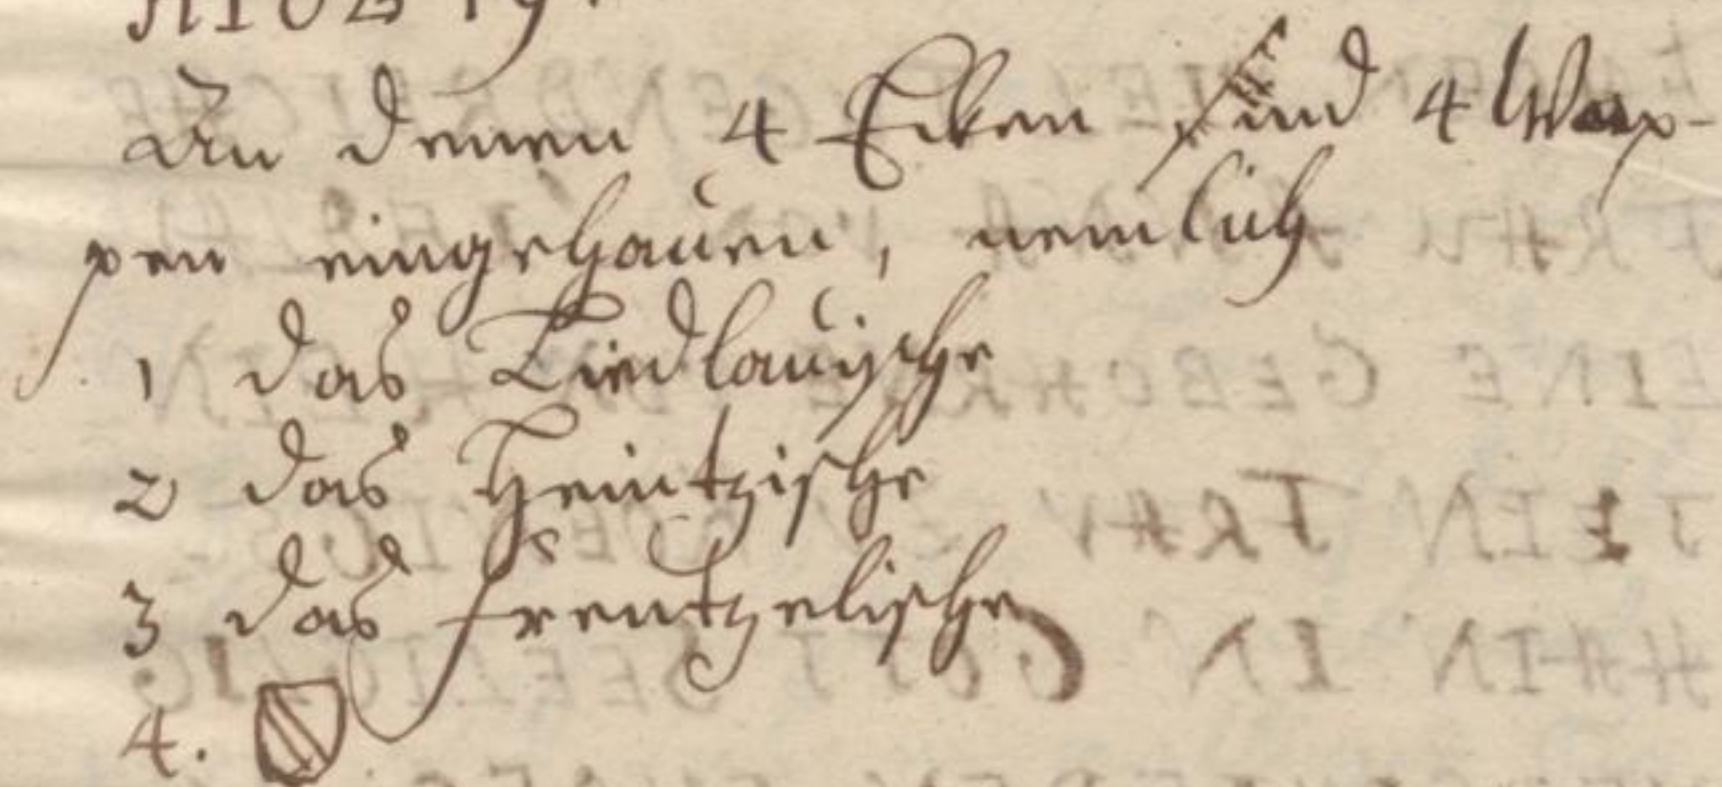 An denen 4 Ecken sind 4 Wap-
pen eingehauen, nemlich
1 das Tiedlauische
2 das Heintzische
3 das frentzelische
4.